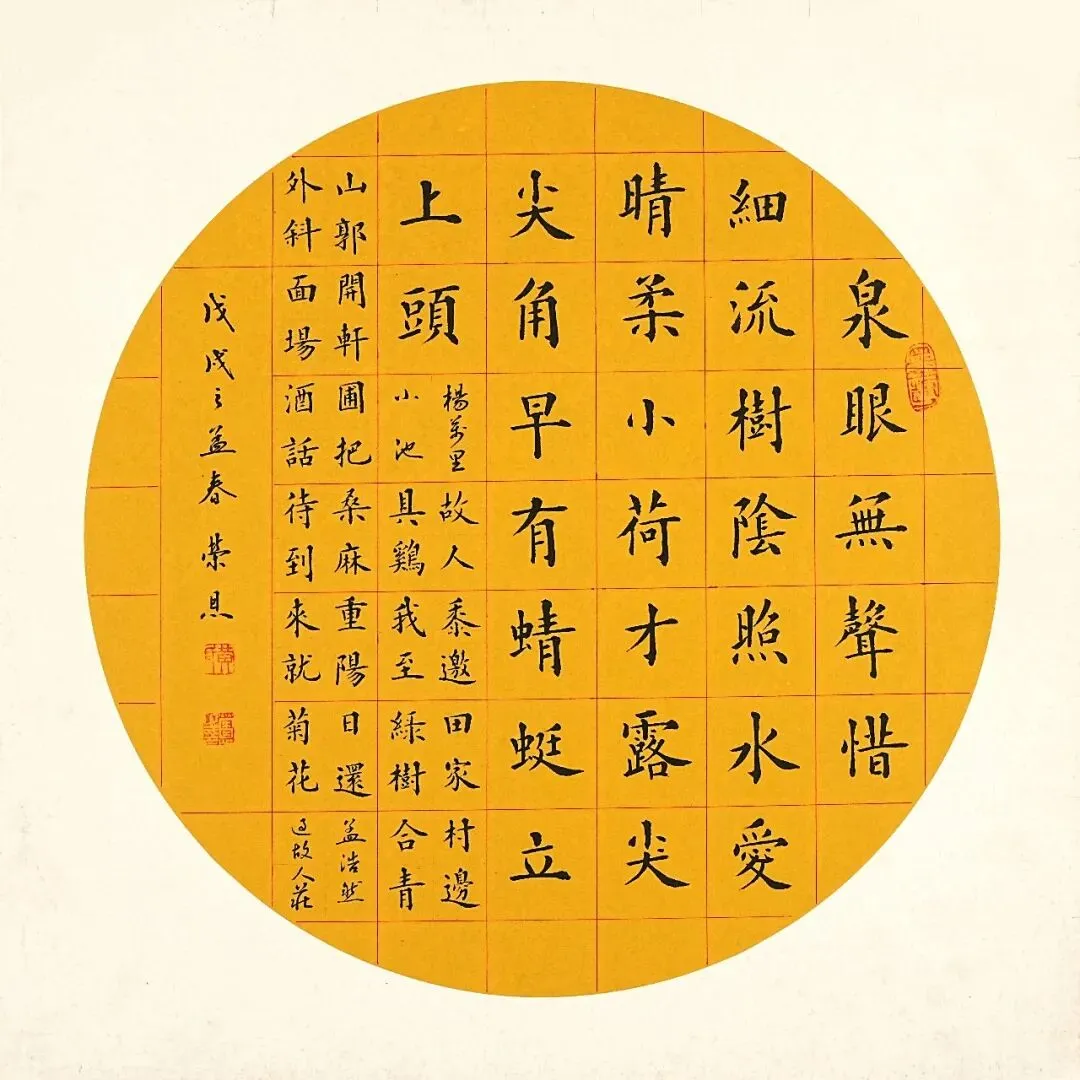 泉眼無聲惜
細流樹陰照水愛
晴柔小荷才露尖
尖角早有蜻蜓立
上頭
楊萬里
小池
故人具鷄黍邀我至田家綠樹村邊合青
山郭外斜開軒面場圃把酒話桑麻待到重陽來就日還菊花
孟浩然
過故人莊
戊戌之孟春榮恩